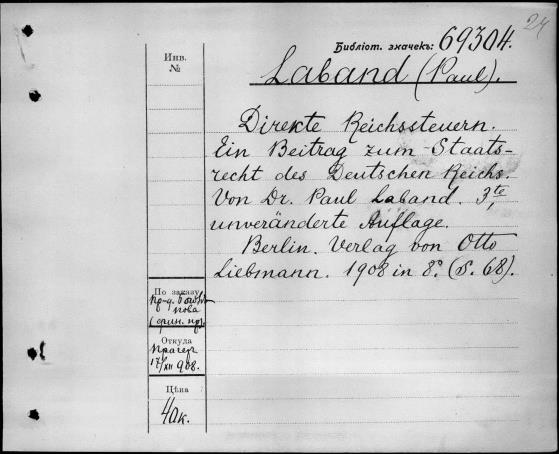 24
Библіот. значекъ: 69304.
Laband (Paul).
Инв.
№
Direkte Reichssteuern.
Ein Beitrag zum Staats-
recht des Deutschen Reichs.
Von Dr. Paul Laband. 3te,
unveränderte Auflage.
Berlin. Verlag von Otto
Liebmann. 1908 in 8º. (S. 68).
По заказу
пр-д.
нова
Откуда
Прагеръ
17/XII 908.
Цѣна